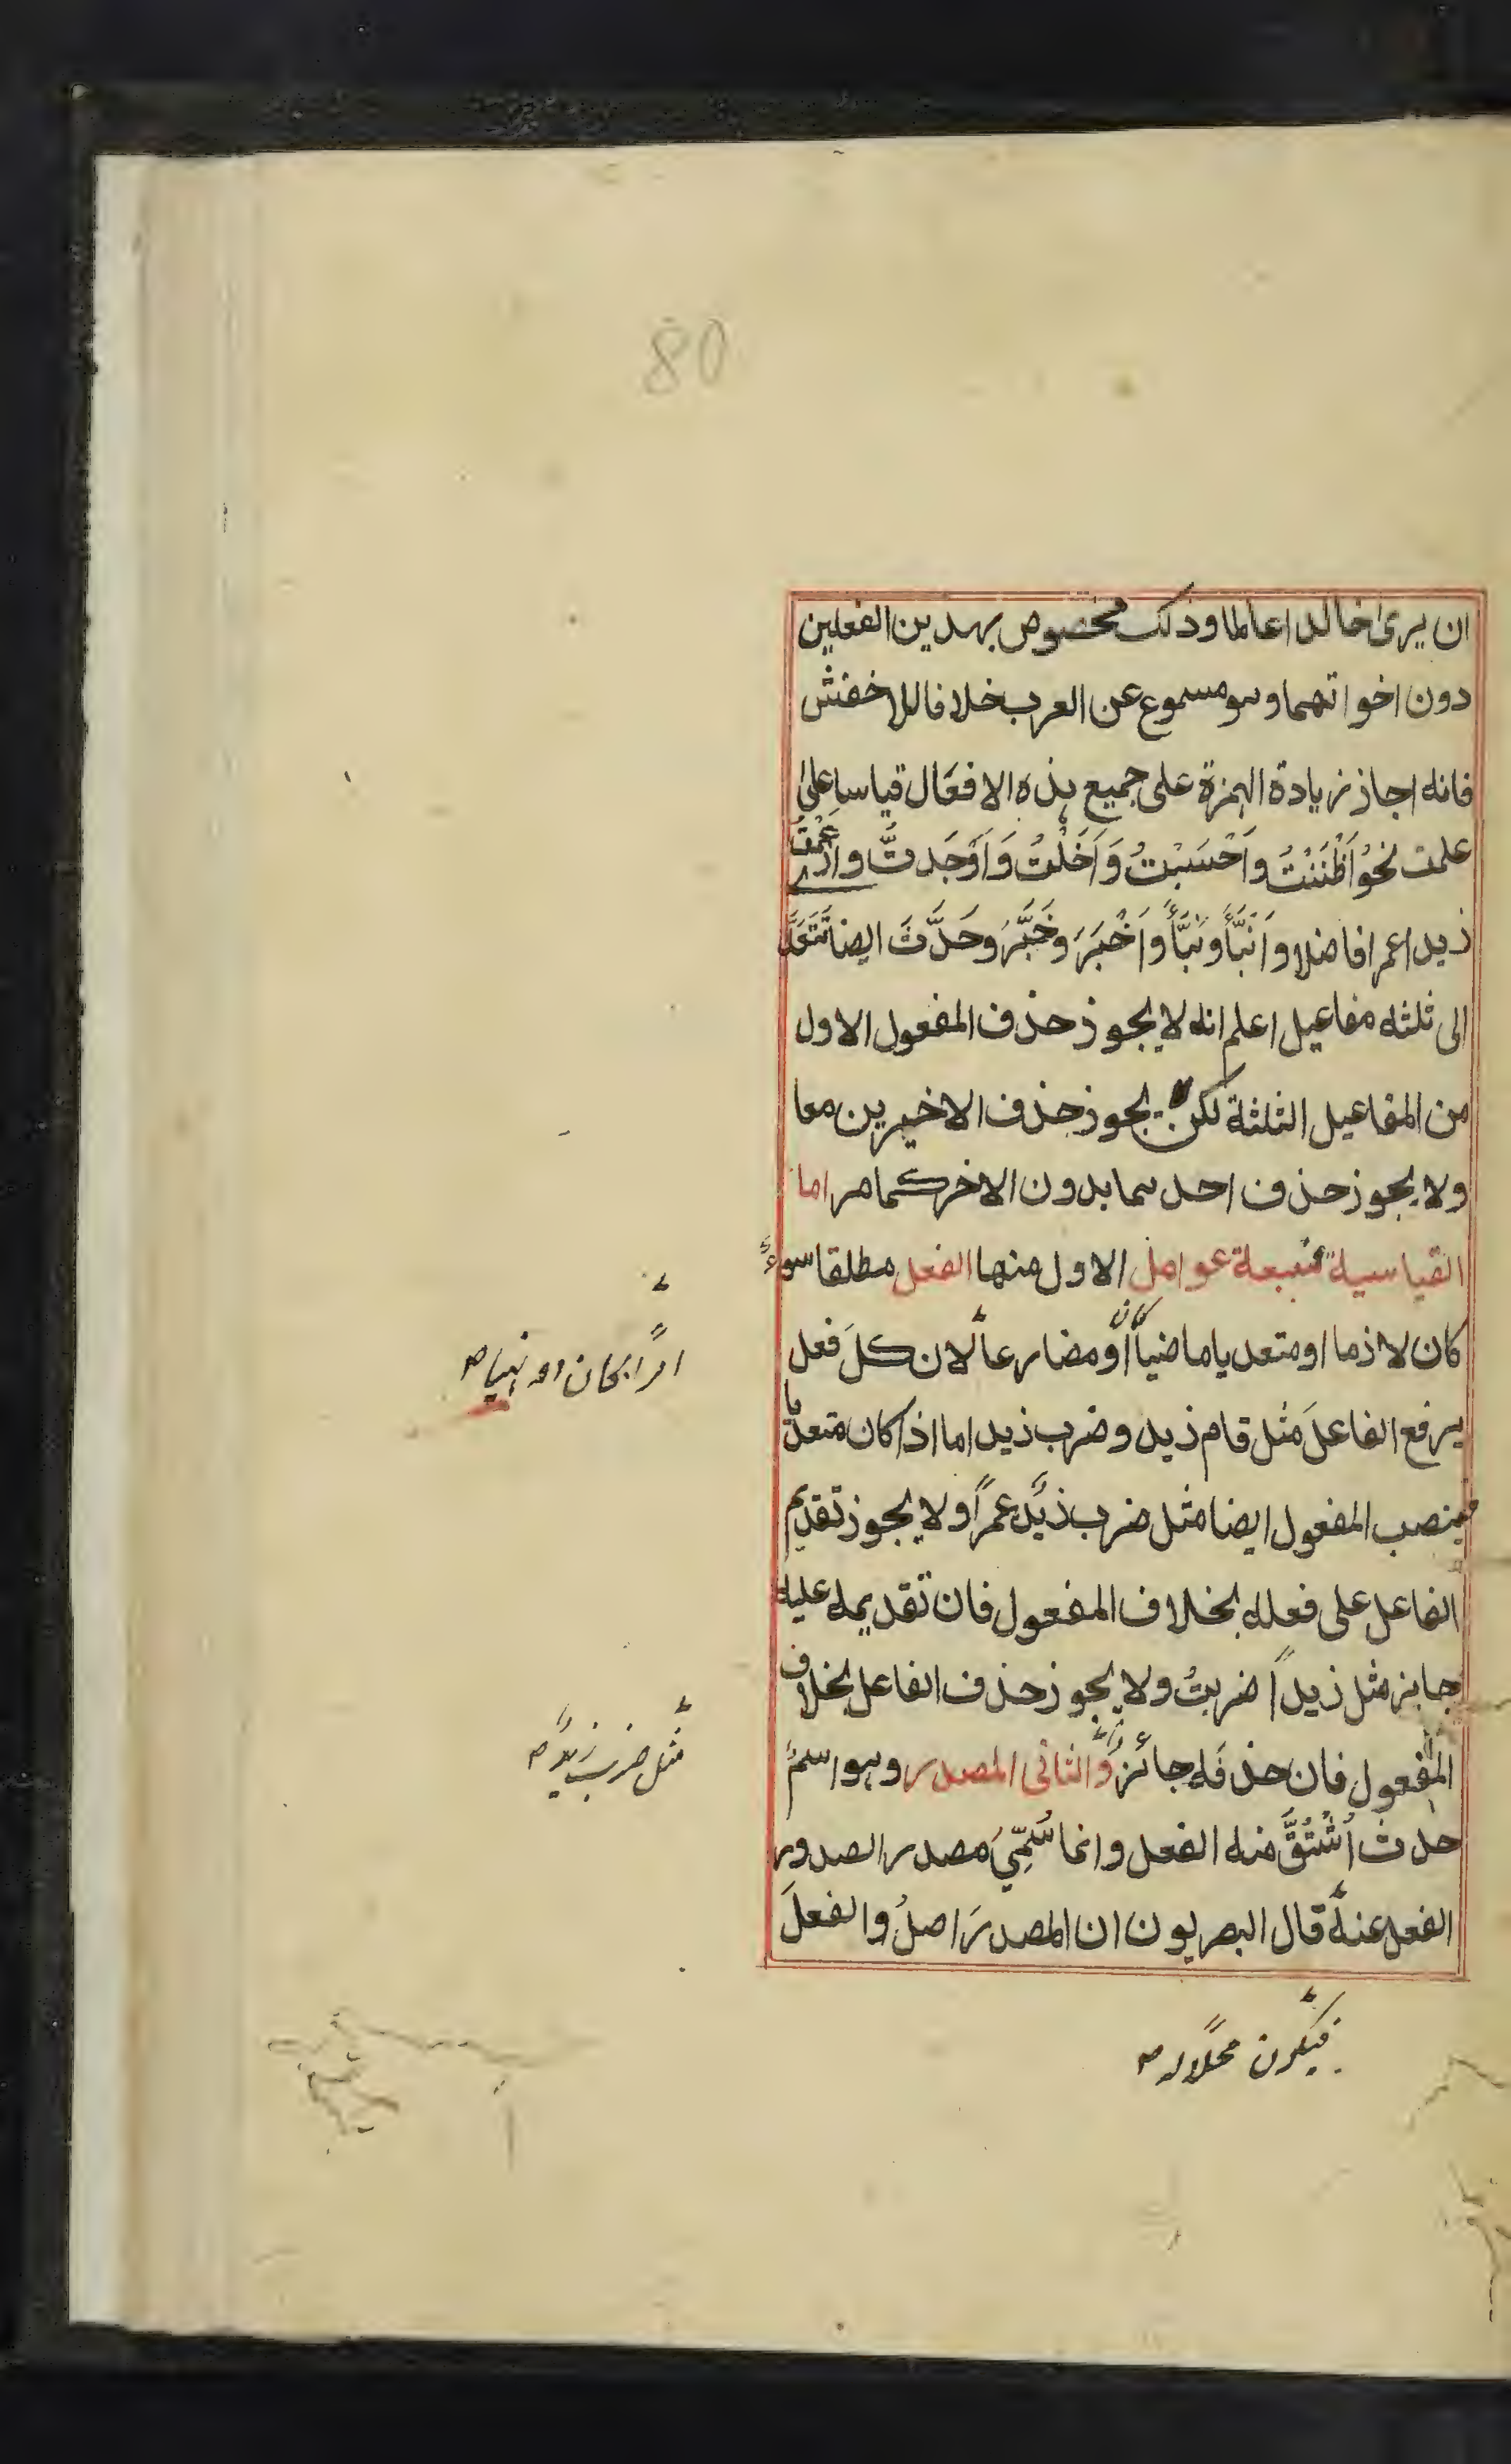 80
ان يرى خالدا عالما وذلك مخصوص بهذين الفعلين
دون اخواتهما وهو مسموع عن العرب خلافا للاخفش
فانه اجاز زيادة الهمزة على جميع هذه الافعال قياسا على
علمت نحو اَظْنَنْتُ واَحْسَبْتُ وَاَخَلْتُ وَاَوْجَدتُّ وازعَمْتُ
زيدا عمرا فاضلا واَنْبَأَ ونَبَّأَ واَخْبَرَ وخَبَّرَ وحَدَّثَ ايضا تَتَعَدَّ
الى ثلثه مفاعيل اعلم انه لا يجوز حذف المفعول الاول
من المفاعيل الثلثة لكن يجوز حذف الاخيرين معا
ولا يجوز حذف احدهما بدون الاخر كما مر اما
القياسية فسبعة عوامل الاول منها الفعل مطلقا سواءً
كان لازما او متعديا ماضياً كان اَوْ مضارعاً لان كلَ فعل
يرفع الفاعلَ مثل قام زيد وضرب زيد اما اذا كان متعديا
فينصب المفعول ايضا مثل ضرب زيدٌ عمراً ولا يجوز تقديم
الفاعل على فعله بخلاف المفعول فان تقديمه عليه
جايز مثل زيداً ضربتُ ولا يجوز حذف الفاعل بخلاف
المفعول فان حذفَه جائز والثانى المصدر وهو اسمُ
حدث اُشْتُقَّ منه الفعل وانما سُمِّيَ مصدر الصدور
الفعل عنه قال البصريون ان المصدرَ اصلُ والفعلَ
امرًا كان او نهيا
مثل ضرب زيدٌ
فيكون محلا له